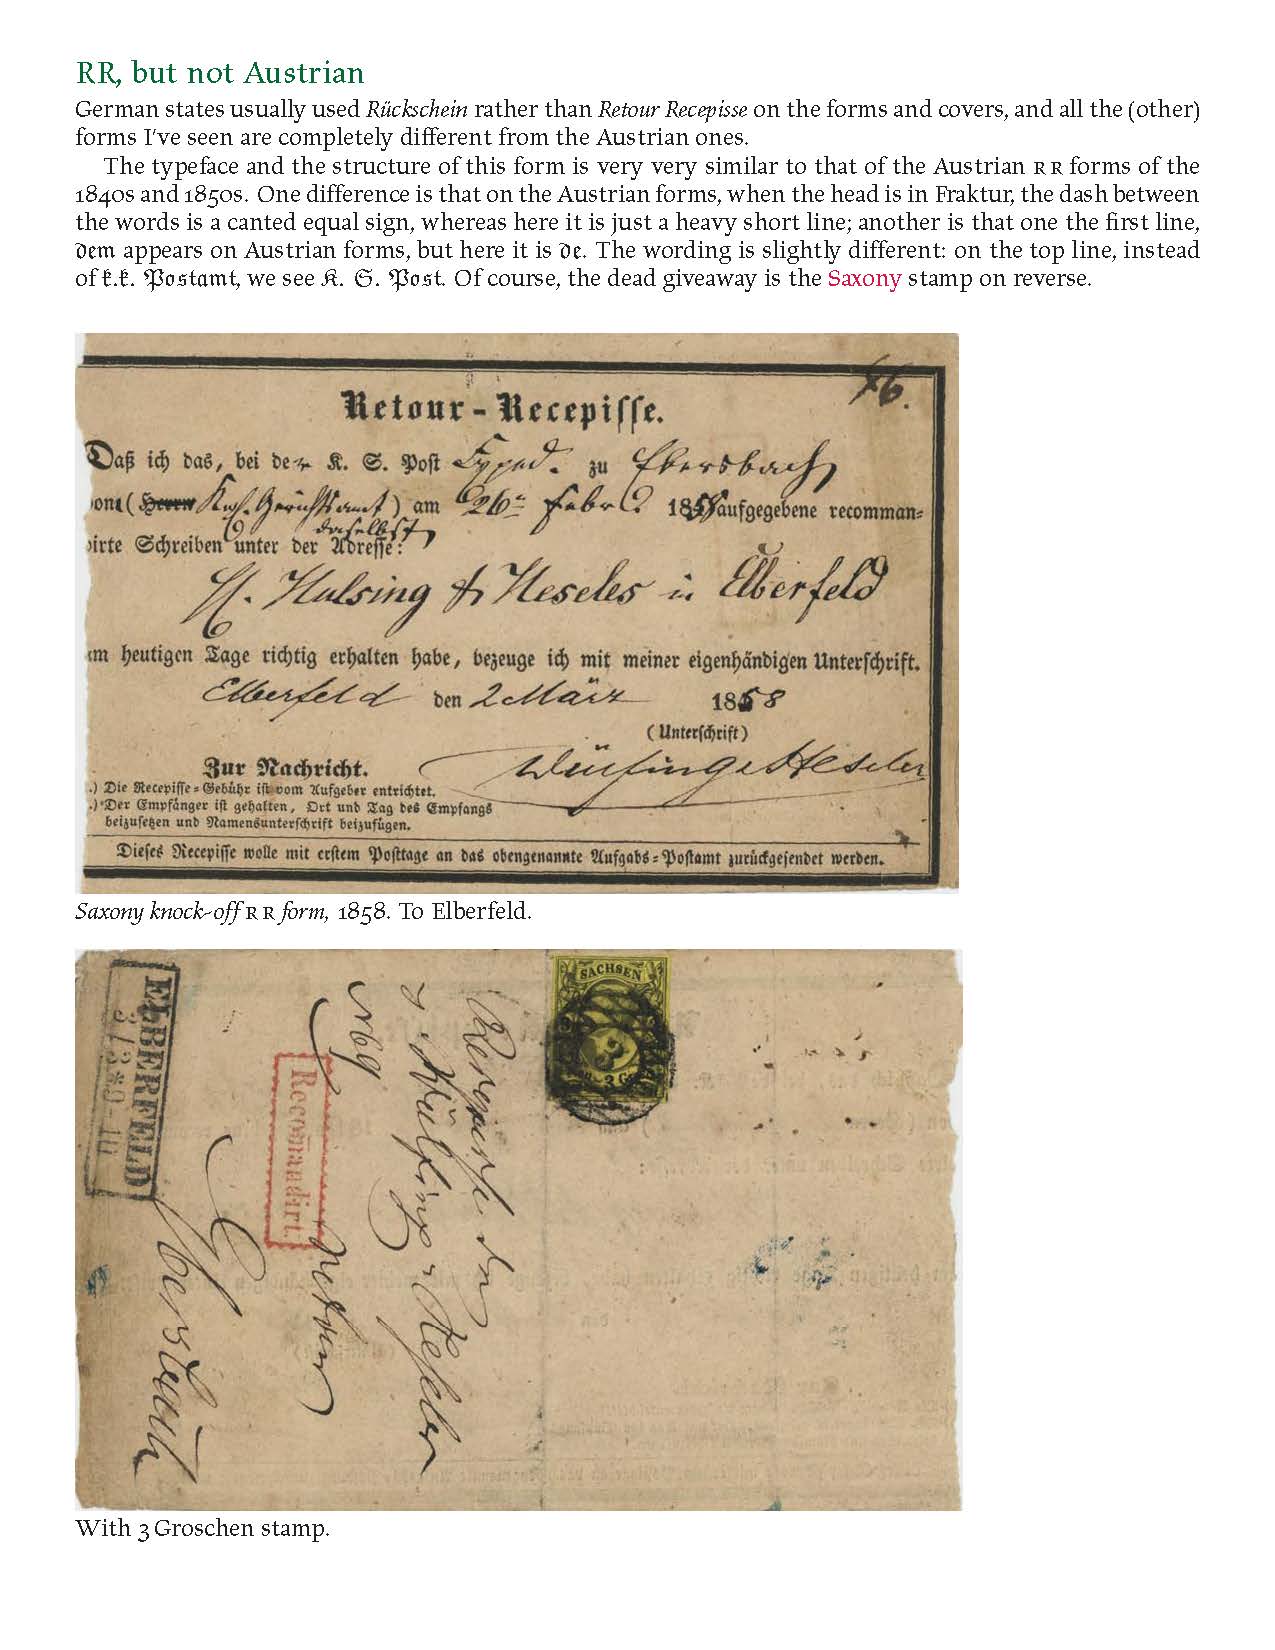 RR, but not Austrian
German states usually used Rückschein rather than Retour Recepisse on the forms and covers, and all the (other)
forms I've seen are completely different from the Austrian ones.
The typeface and the structure of this form is very very similar to that of the Austrian RR forms of the
1840s and 1850s. One difference is that on the Austrian forms, when the head is in Fraktur, the dash between
the words is a canted equal sign, whereas here it is just a heavy short line; another is that one the first line,
dem appears on Austrian forms, but here it is de. The wording is slightly different: on the top line, instead
of k.k. Postamt, we see K. S. Post. Of course, the dead giveaway is the Saxony stamp on reverse.
46.
Retour-Recepisse.
Daß ich das, bei der K. S. Post Exped. zu Ebersbach
von (Herrn Kön. Gerichtsamt) am 26 Febr. 1858 aufgegebene recomman=
daselbst
dirte Schreiben unter der Adresse:
H. Hulsing & Heseles in Elberfeld
am heutigen Tage richtig erhalten habe, bezeuge ich mit meiner eigenhändigen Unterschrift.
Elberfeld den 2 März 1858
(Unterschrift)
Zur Nachricht.
.) Die Recepisse=Gebühr ist vom Aufgeber entrichtet.
.) Der Empfänger ist gehalten, Ort und Tag des Empfangs
beizusetzen und Namensunterschrift beizufügen.
Dieses Recepisse wolle mit erstem Posttage an das obengenannte Aufgabs=Postamt zurückgesendet werden.
Saxony knock-off RR form, 1858. To Elberfeld.
SACHSEN
3
ELBERFELD
3/3*9-10
Recomandirt.
retour
Ebersbach
With 3 Groschen stamp.